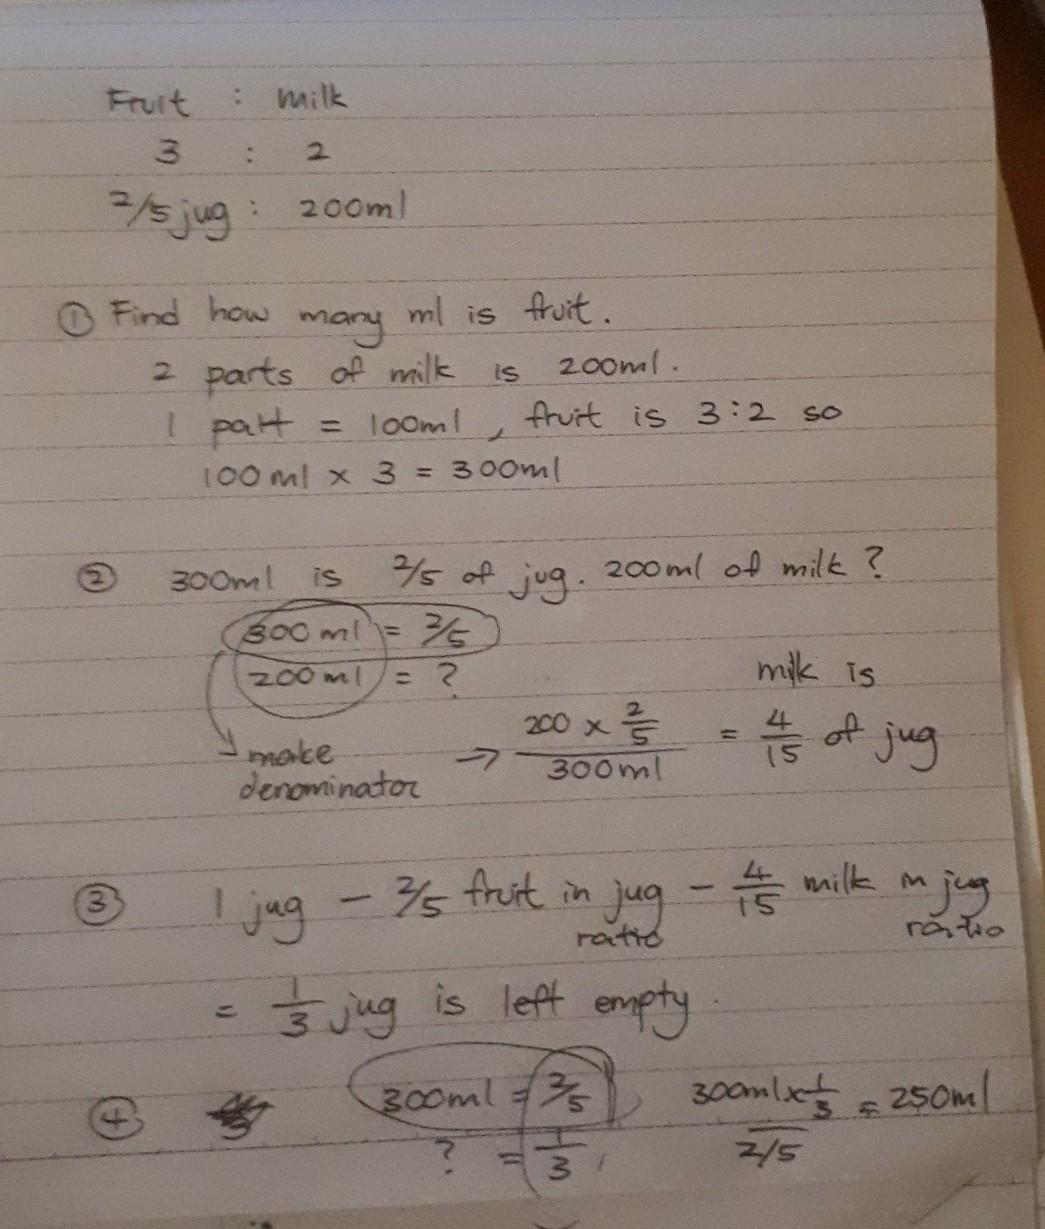 Fruit : milk
3 : 2
2/5 jug : 200ml
① Find how many ml is fruit.
2 parts of milk is 200ml.
1 part = 100ml, fruit is 3:2 so
100ml x 3 = 300ml
② 300ml is 2/5 of jug. 200ml of milk?
300ml = 2/5
200ml = ?
make denominator → 200 x 2/5 / 300ml = 4/15 of jug
milk is
③ 1 jug - 2/5 fruit in jug - 4/15 milk in jug
ratio ratio
= 1/3 jug is left empty.
④ 300ml = 2/5 300ml x 1/3 / 2/5 = 250ml
? = 1/3